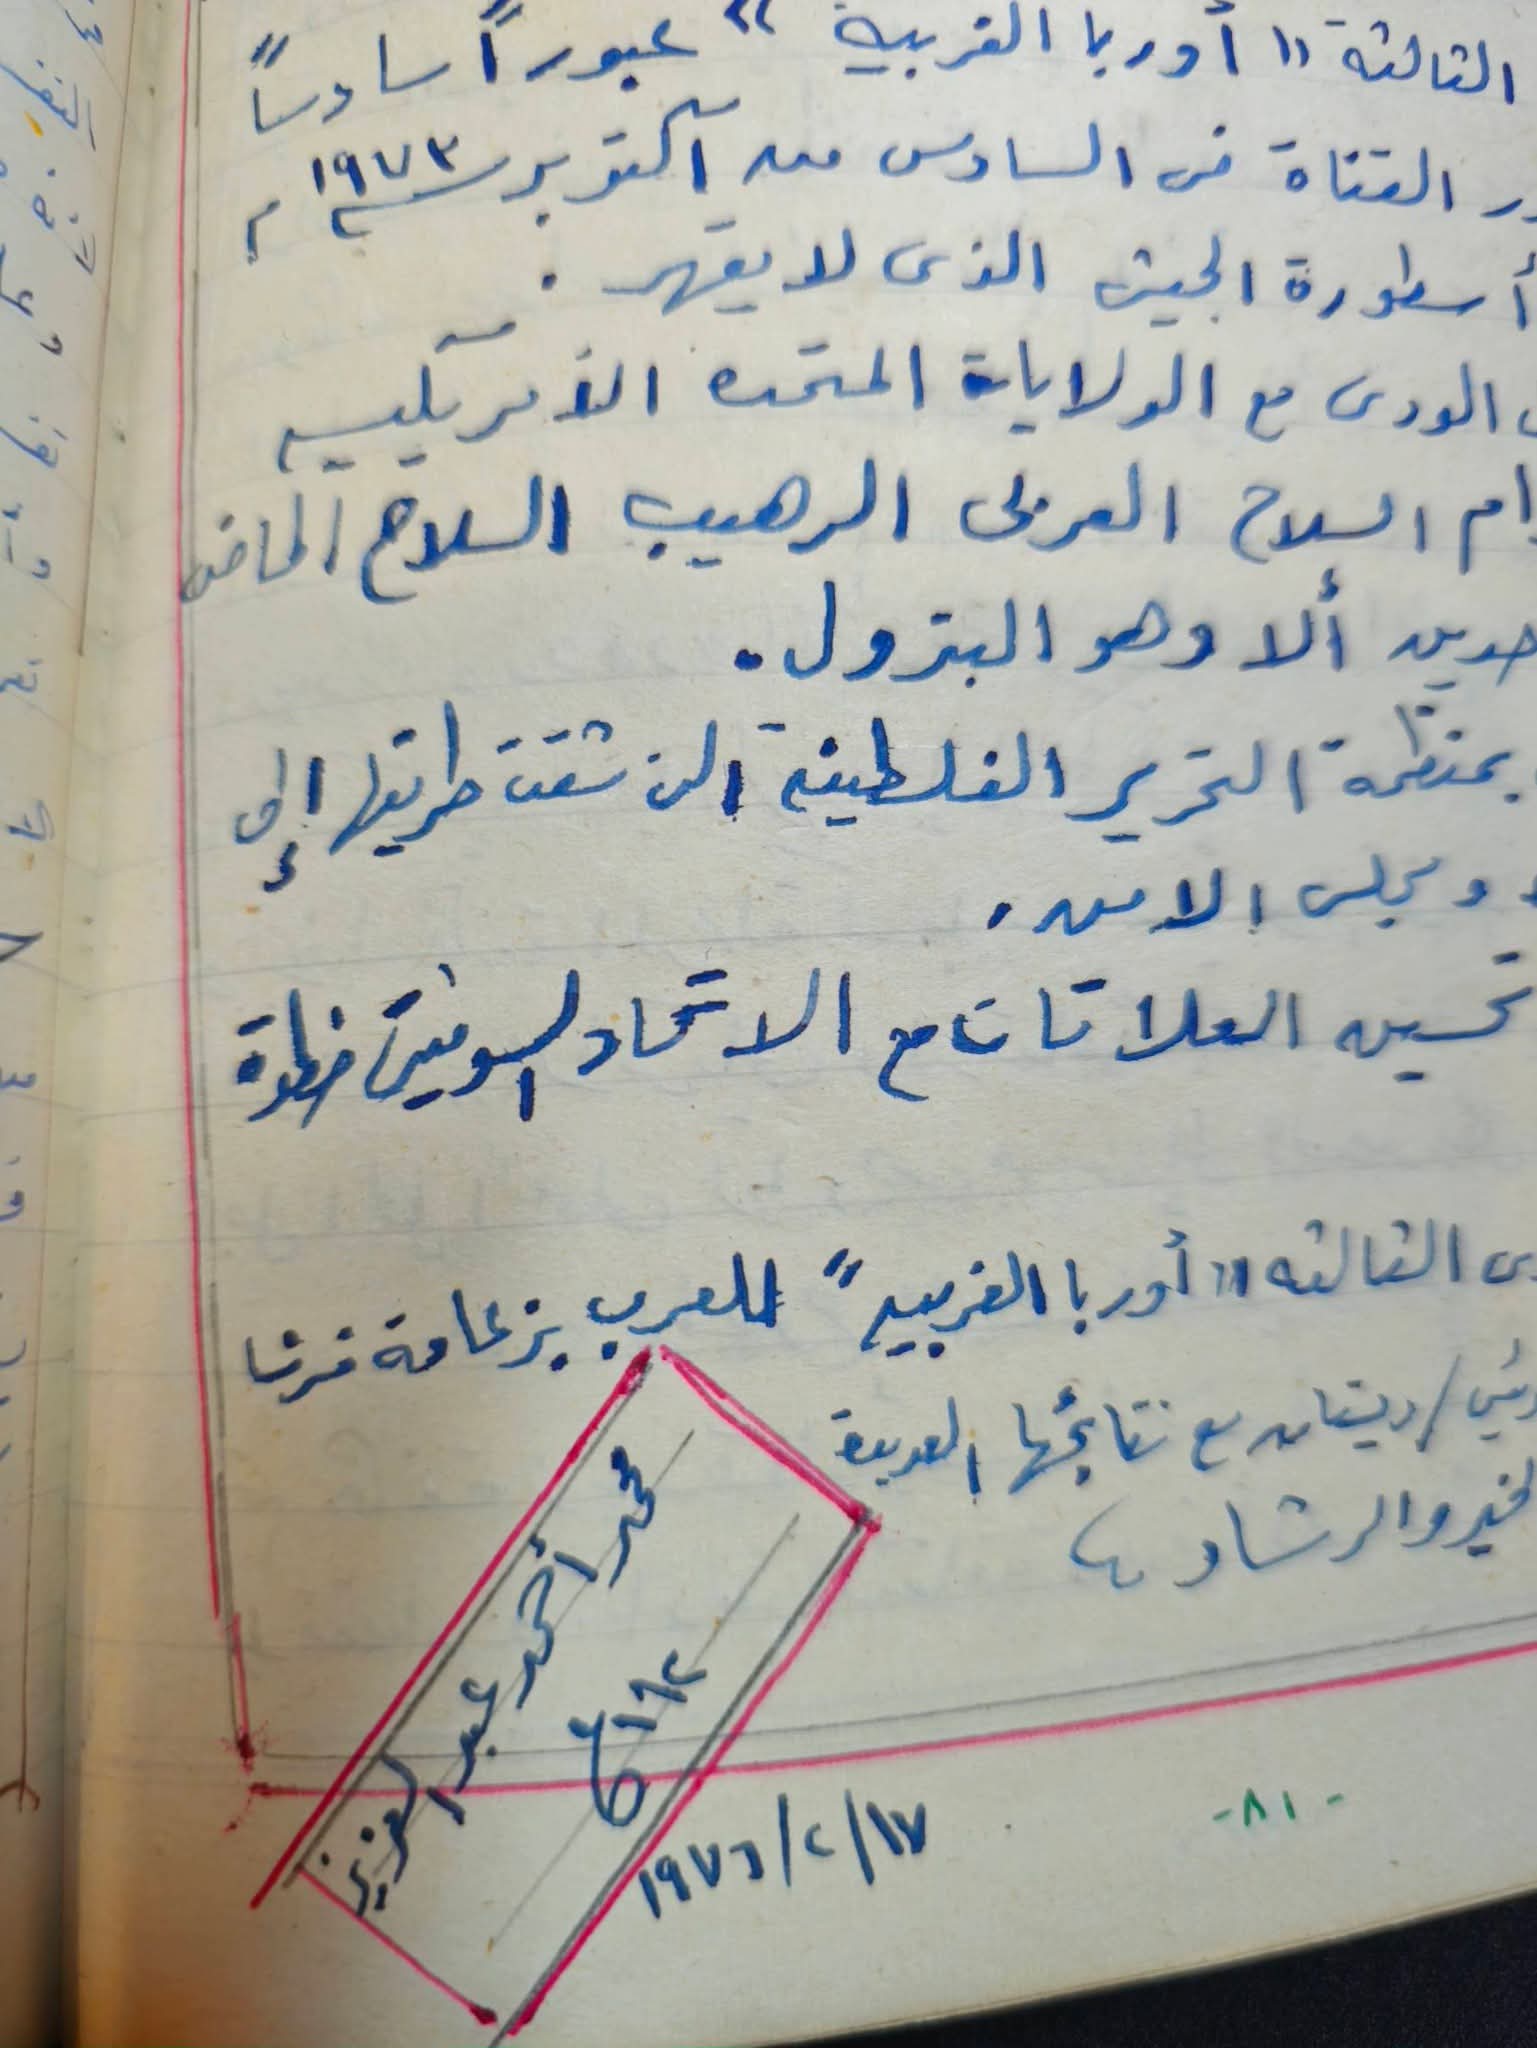 الثالثة "أوربا الغربية" عبوراً سادساً
القناة فى السادس من أكتوبر سنة ١٩٧٣ م
أسطورة الجيش الذى لا يقهر .
الودى مع الولايات المتحده الأمريكيه
السلاح العربى الرهيب السلاح الماضى
ألا وهو البترول .
بمنظمة التحرير الفلسطينية التى شقت طريقها إلى
ومجلس الامن .
تحسين العلاقات مع الاتحاد السوفيتى خطوة
الثالثه "أوربا الغربيه" للعرب بزعامة فرنسا
ديستان مع نتائجها العديدة
والرشاد
محمد أحمد عبد العزيز
١٩٧٦/٢/١٧
- ٨١ -